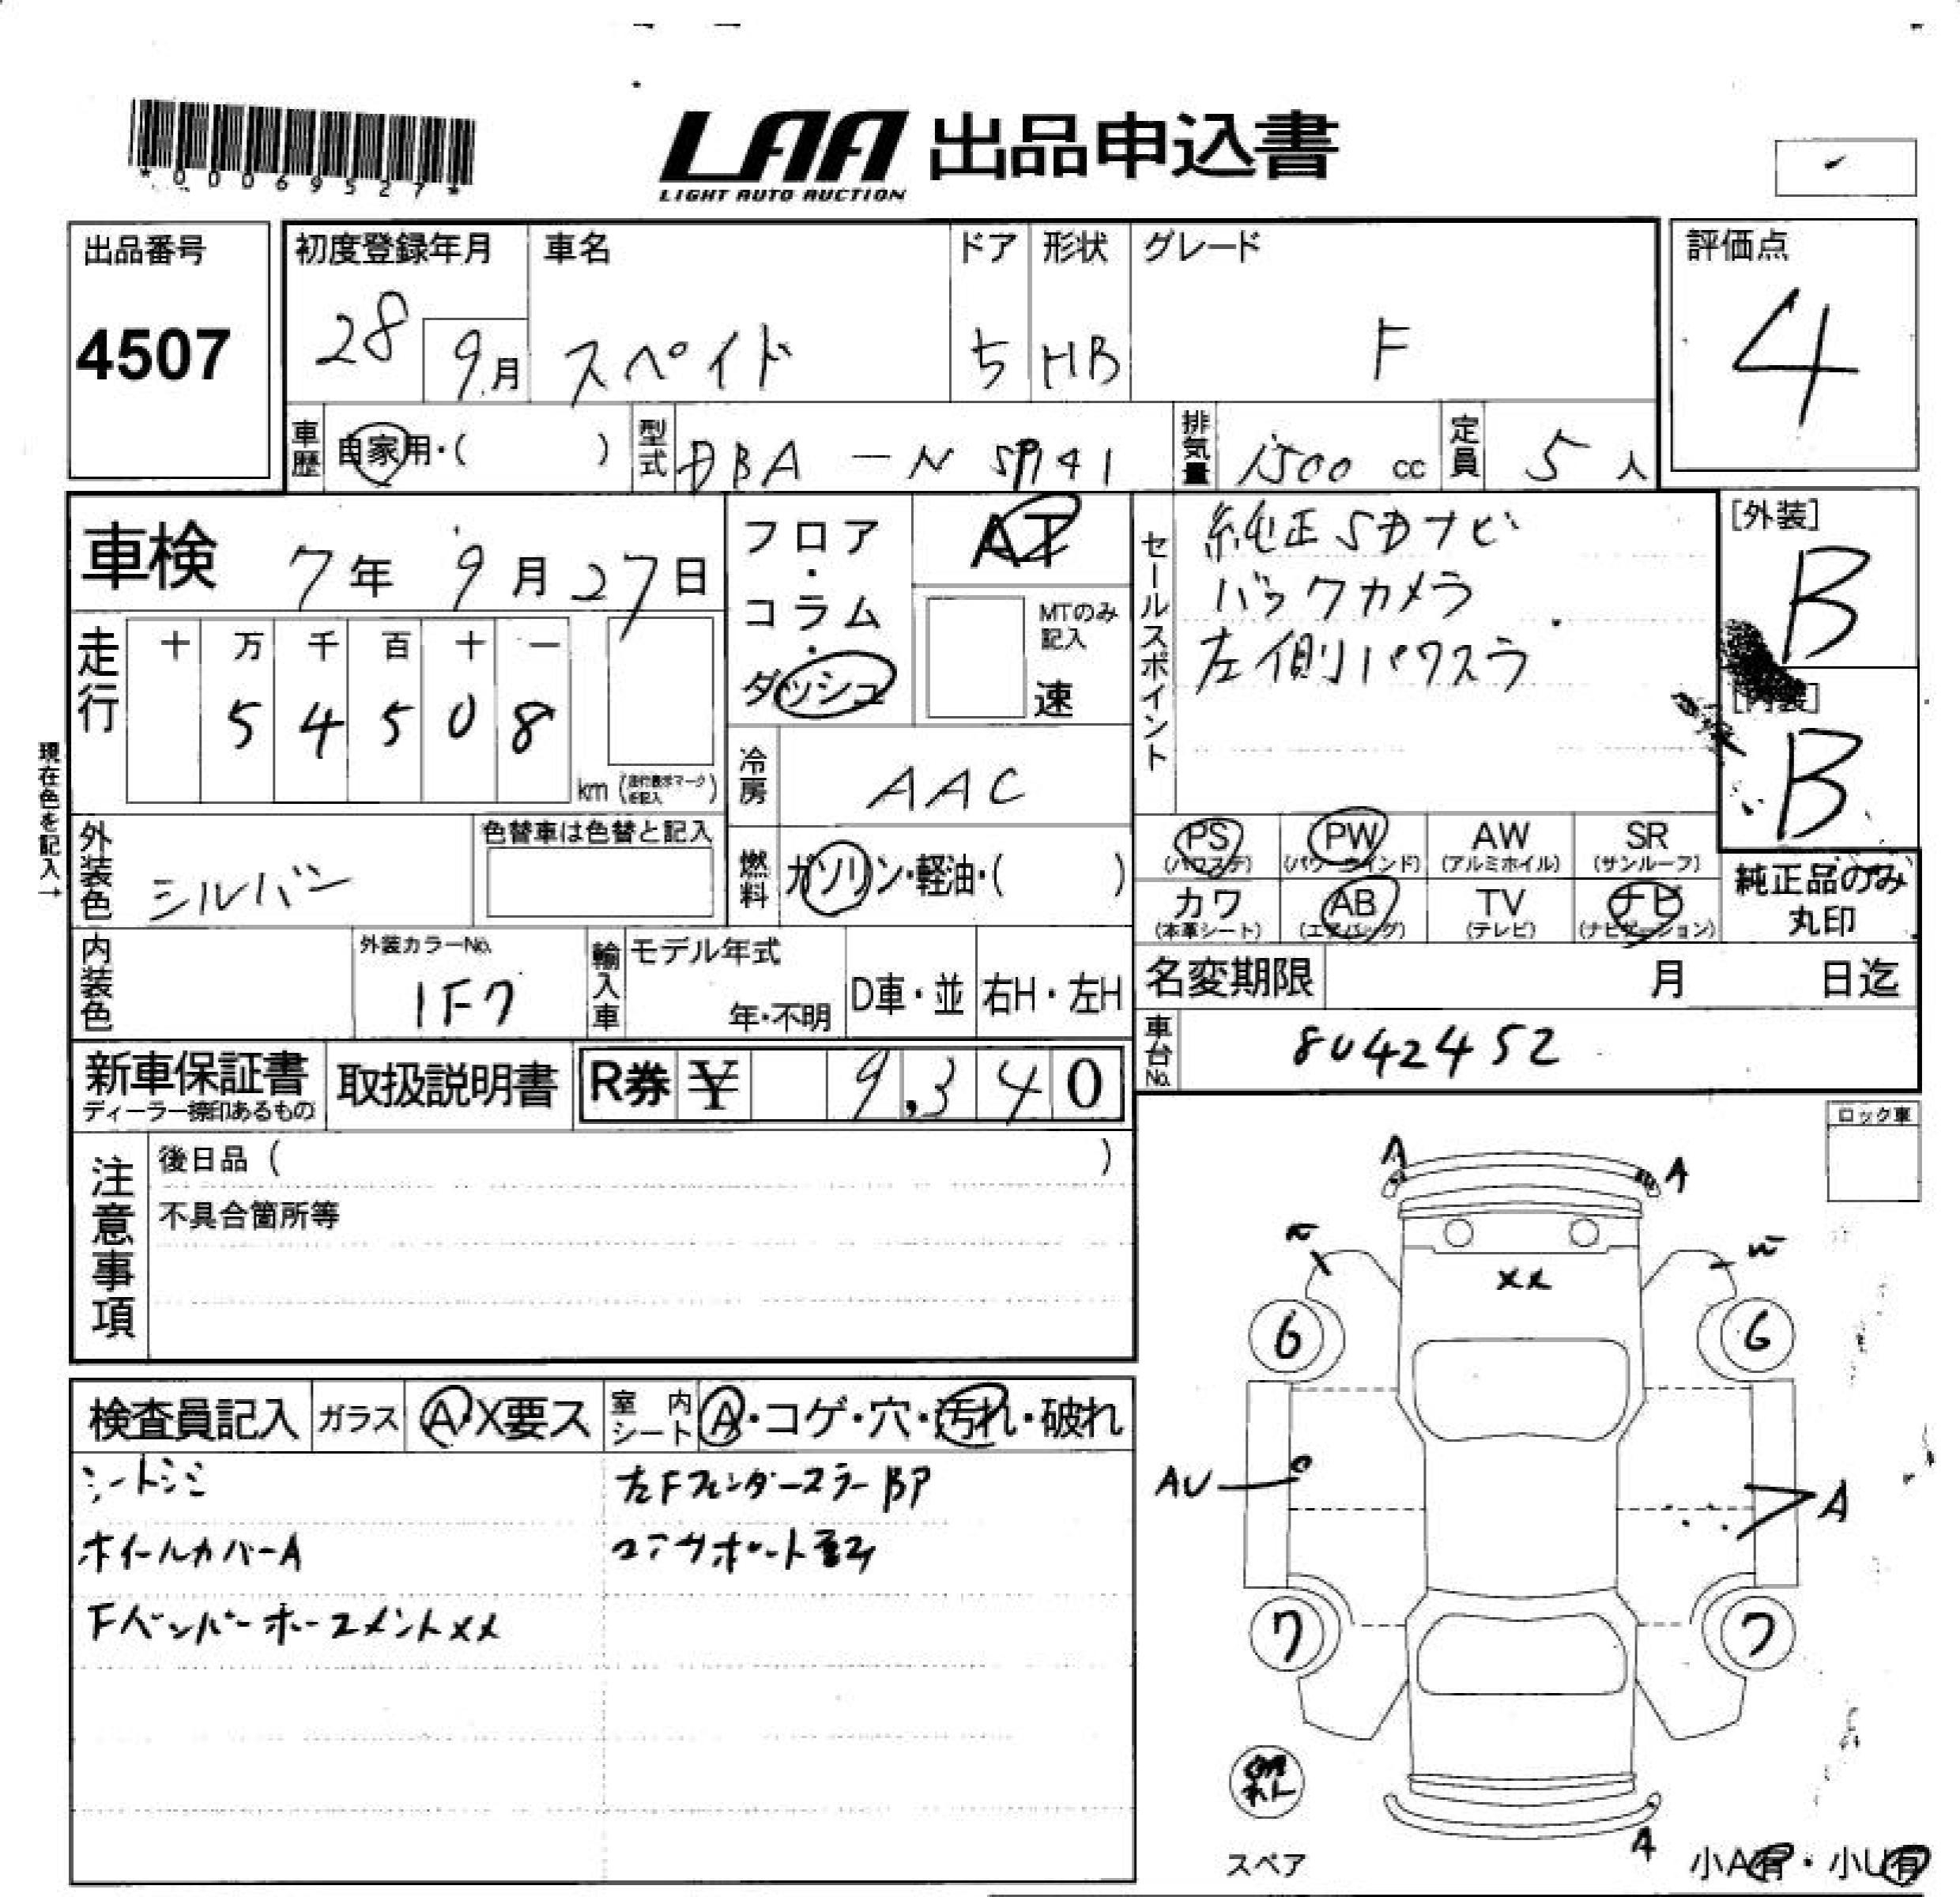 *00069527*
LAA 出品申込書
LIGHT AUTO AUCTION
出品番号
4507
初度登録年月
28 9月
車名
スペイド
ドア
5
形状
HB
グレード
F
評価点
4
車歴 自家用・( )
型式 DBA-NSP141
排気量 1500 cc
定員 5 人
車検 7年 9月 27日
走行
十 万 千 百 十 一
5 4 5 0 8
km
現在色を記入→
フロア・コラム・ダッシュ
AT
MTのみ記入
速
セールスポイント
純正SDナビ
バックカメラ
左側パワスラ
[外装]
B
[内装]
B
冷房 AAC
燃料 ガソリン・軽油・( )
外装色 シルバー
色替車は色替と記入
PS (パワステ)
PW (パワーウインド)
AW (アルミホイル)
SR (サンルーフ)
カワ (本革シート)
AB (エアバッグ)
TV (テレビ)
ナビ (ナビゲーション)
純正品のみ
丸印
内装色
外装カラーNo.
1F7
輸入車
モデル年式
年・不明
D車・並
右H・左H
名変期限 月 日迄
車台No. 8042452
新車保証書
ディーラー捺印あるもの
取扱説明書
R券 ¥ 9,340
注意事項
後日品 ( )
不具合箇所等
ロック車
検査員記入
ガラス A・X要ス
室内シート A・コゲ・穴・汚れ・破れ
シートシミ
ホイールカバーA
左Fフェンダーミラー BP
コアサポート
FバンパーホースメントXX
A
A
W
XX
6
6
AU
A
7
7
スペア
A
小A有・小U有